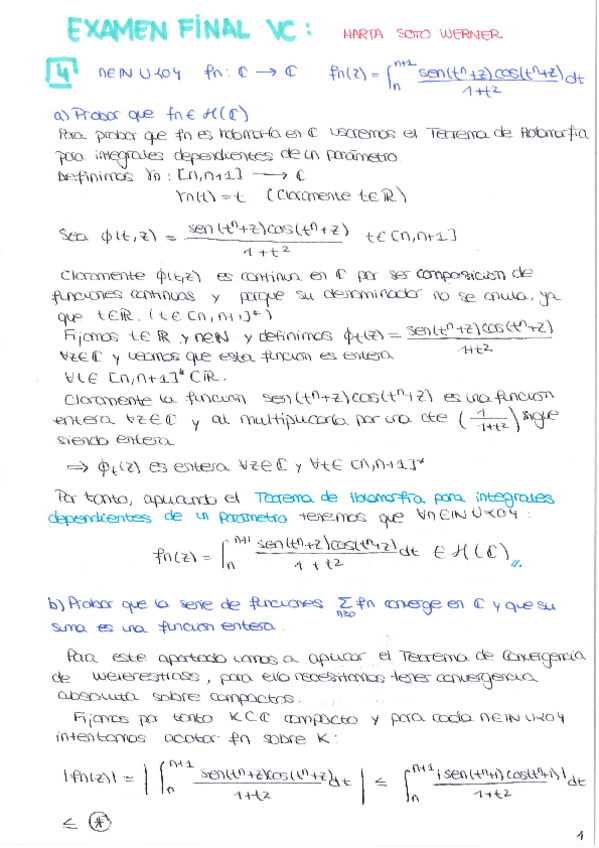 EXAMEN FINAL VC: MARTA SOTO WERNER
4 n∈ℕ∪{0} fn: ℂ → ℂ fn(z) = ∫_n^{n+1} sen(t^n+z)cos(t^n+z)/(1+t^2) dt
a) Probar que fn ∈ H(ℂ)
Para probar que fn es holomorfa en ℂ usaremos el Teorema de Holomorfía
para integrales dependientes de un parámetro.
Definimos γn: [n,n+1] → ℂ
γn(t) = t (Claramente t∈ℝ)
Sea ϕ(t,z) = sen(t^n+z)cos(t^n+z)/(1+t^2) t∈[n,n+1]
Claramente ϕ(t,z) es continua en ℂ por ser composición de
funciones continuas y porque su denominador no se anula, ya
que t∈ℝ. (t∈[n,n+1]*)
Fijamos t∈ℝ y n∈ℕ y definimos ϕt(z) = sen(t^n+z)cos(t^n+z)/(1+t^2)
∀z∈ℂ y veamos que esta función es entera
∀t∈ [n,n+1]* ⊂ℝ.
Claramente la función sen(t^n+z)cos(t^n+z) es una función
entera ∀z∈ℂ y al multiplicarla por una cte (1/(1+t^2)) sigue
siendo entera
⇒ ϕt(z) es entera ∀z∈ℂ y ∀t∈ [n,n+1]*
Por tanto, aplicando el Teorema de Holomorfía para integrales
dependientes de un parámetro tenemos que ∀n∈ℕ∪{0}:
fn(z) = ∫_n^{n+1} sen(t^n+z)cos(t^n+z)/(1+t^2) dt ∈ H(ℂ)
b) Probar que la serie de funciones Σ_{n≥0} fn converge en ℂ y que su
suma es una función entera.
Para este apartado vamos a aplicar el Teorema de Convergencia
de Weierestrass, para ello necesitamos tener convergencia
absoluta sobre compactos.
Fijamos por tanto K⊂ℂ compacto y para cada n∈ℕ∪{0}
intentamos acotar fn sobre K:
|fn(z)| = |∫_n^{n+1} sen(t^n+z)cos(t^n+z)/(1+t^2) dt| ≤ ∫_n^{n+1} |sen(t^n+z)cos(t^n+z)|/(1+t^2) dt
≤ (*)
1